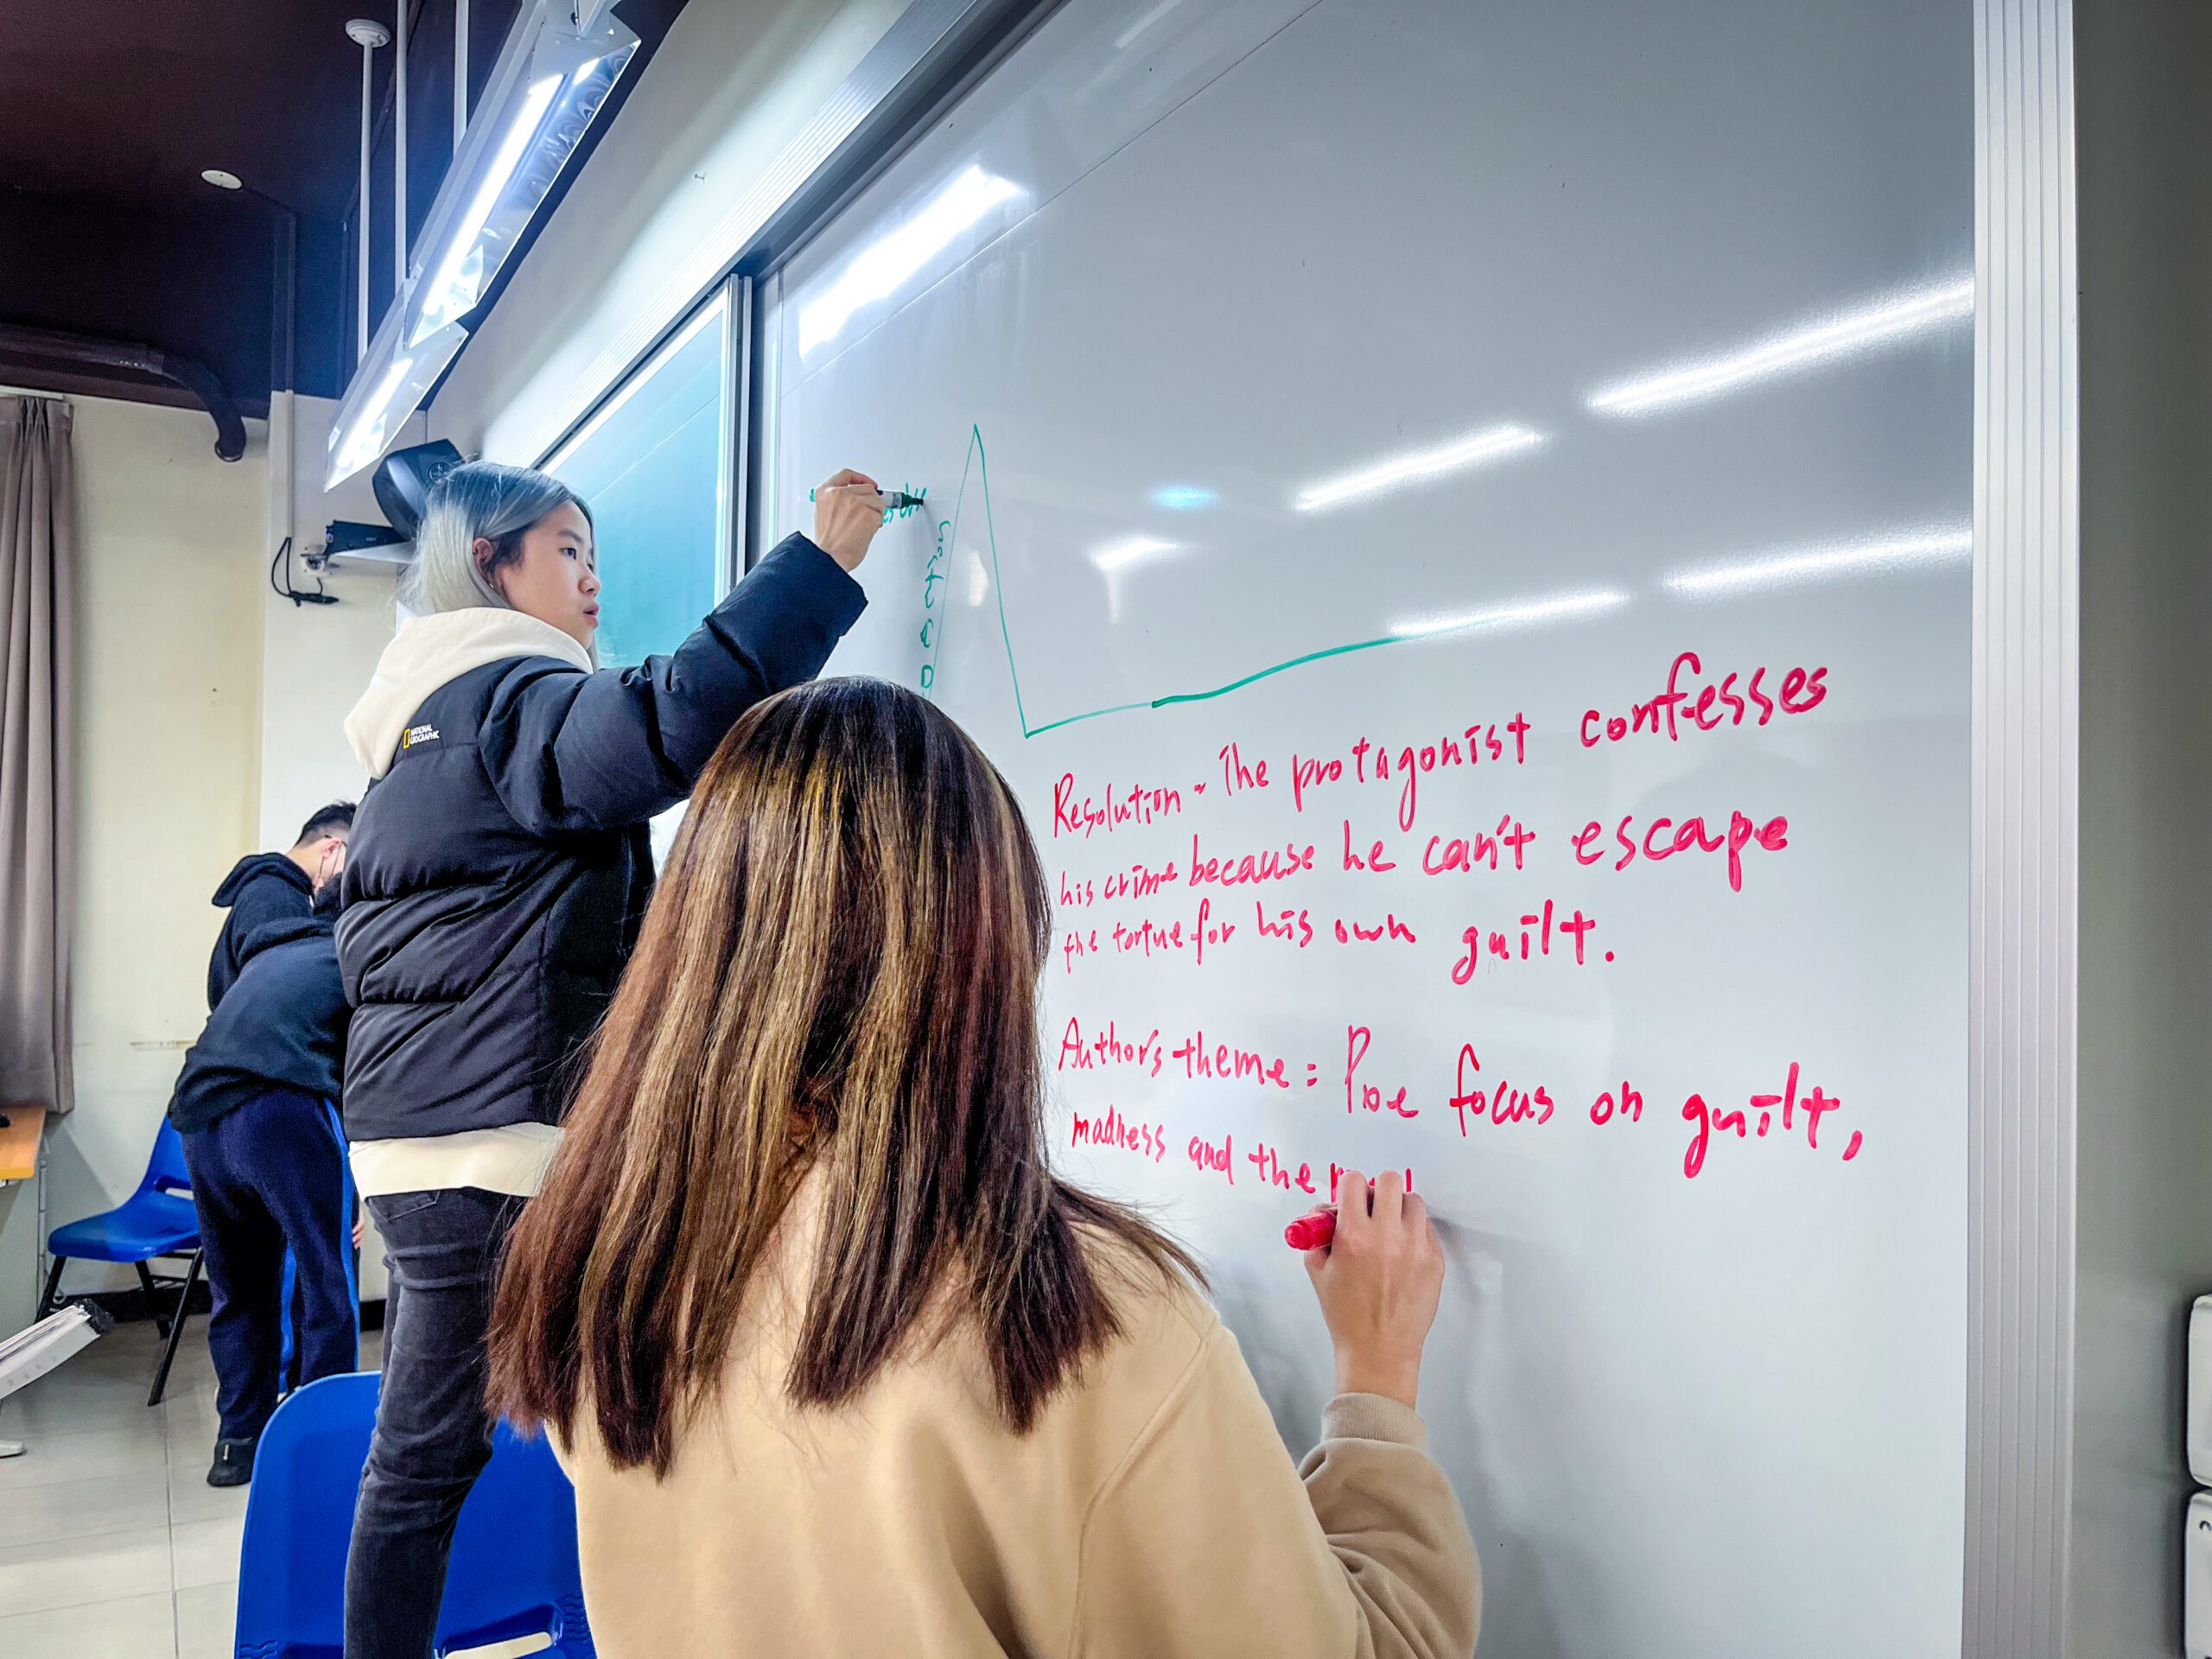 NATIONAL
GEOGRAPHIC
Resolution - The protagonist confesses
his crime because he can't escape
the tortue for his own guilt.
Author's theme : Poe focus on guilt,
madness and the